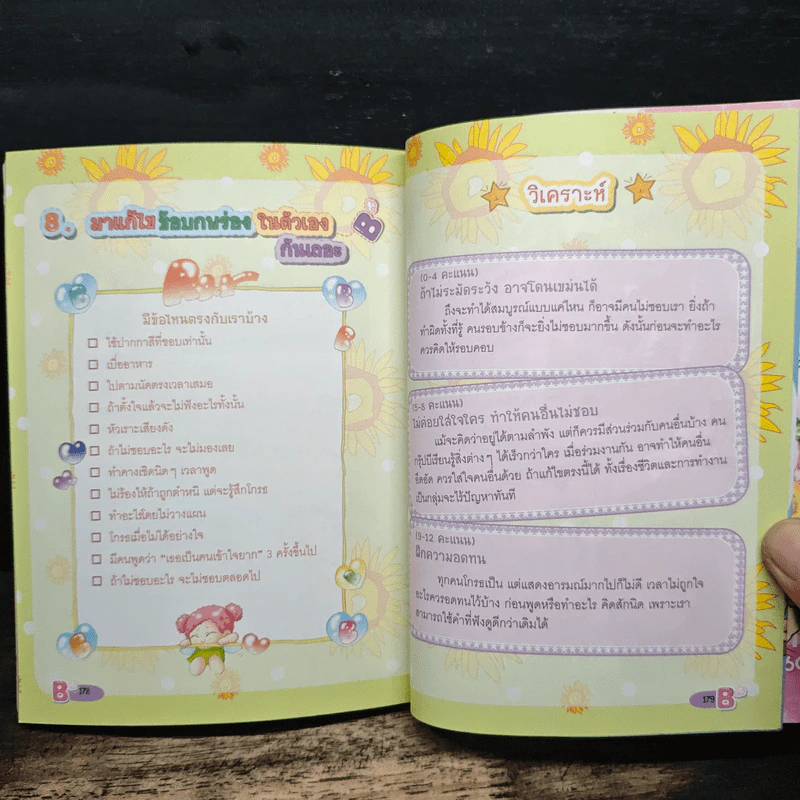 8. มาแก้ไขข้อบกพร่องในตัวเอง
กันเถอะ
B
มีข้อไหนตรงกับเราบ้าง
ใช้ปากกาสีที่ชอบเท่านั้น
เบื่ออาหาร
ไปตามนัดตรงเวลาเสมอ
ถ้าตั้งใจแล้วจะไม่ฟังอะไรทั้งนั้น
หัวเราะเสียงดัง
ถ้าไม่ชอบอะไร จะไม่มองเลย
ทำคางเชิดนิดๆ เวลาพูด
ไม่ร้องไห้ถ้าถูกตำหนิ แต่จะรู้สึกโกรธ
ทำอะไรโดยไม่วางแผน
โกรธเมื่อไม่ได้อย่างใจ
มีคนพูดว่า "เธอเป็นคนเข้าใจยาก" 3 ครั้งขึ้นไป
ถ้าไม่ชอบอะไร จะไม่ชอบตลอดไป
B 178
วิเคราะห์
(0-4 คะแนน)
ถ้าไม่ระมัดระวัง อาจโดนเขม่นได้
ถึงจะทำได้สมบูรณ์แบบแค่ไหน ก็อาจมีคนไม่ชอบเรา ยิ่งถ้า
ทำผิดทั้งที่รู้ คนรอบข้างก็จะยิ่งไม่ชอบมากขึ้น ดังนั้นก่อนจะทำอะไร
ควรคิดให้รอบคอบ
(5-8 คะแนน)
ไม่ค่อยใส่ใจใคร ทำให้คนอื่นไม่ชอบ
แม้จะคิดว่าอยู่ได้ตามลำพัง แต่ก็ควรมีส่วนร่วมกับคนอื่นบ้าง คน
กรุ๊ปบีเรียนรู้สิ่งต่างๆ ได้เร็วกว่าใคร เมื่อร่วมงานกัน อาจทำให้คนอื่น
อึดอัด ควรใส่ใจคนอื่นด้วย ถ้าแก้ไขตรงนี้ได้ ทั้งเรื่องชีวิตและการทำงาน
เป็นกลุ่มจะไร้ปัญหาทันที
(9-12 คะแนน)
ฝึกความอดทน
ทุกคนโกรธเป็น แต่แสดงอารมณ์มากไปก็ไม่ดี เวลาไม่ถูกใจ
อะไรควรอดทนไว้บ้าง ก่อนพูดหรือทำอะไร คิดสักนิด เพราะเรา
สามารถใช้คำที่ฟังดูดีกว่าเดิมได้
179 B